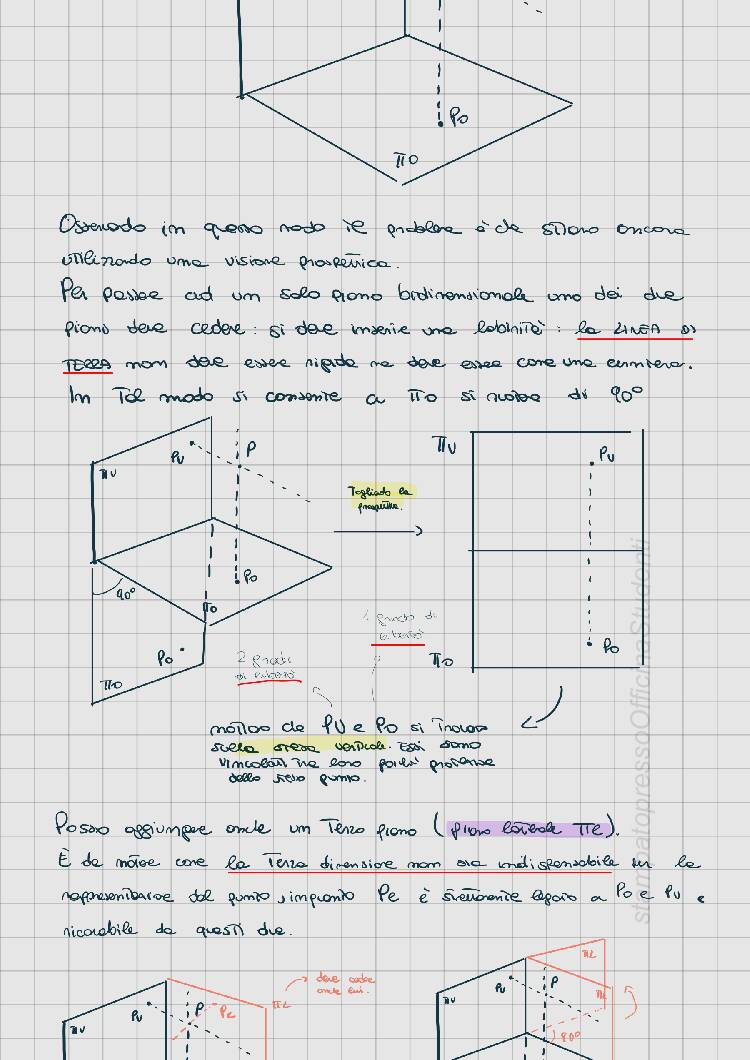 Po
πo
Osservando in questo modo il problema è che stiamo ancora
utilizzando una visione prospettica.
Per passare ad un solo piano bidimensionale uno dei due
piani deve cedere: si deve inserire una labilità: la LINEA DI
TERRA non deve essere rigida ma deve essere come una cerniera.
In tal modo si consente a πo di ruotare di 90°
πv
Pv
P
Togliendo la
prospettiva.
πv
Pv
90°
Po
πo
Po
πo
1 grado di
libertà
2 gradi
di libertà
πo
Po
notiamo che Pv e Po si trovano
sulla stessa verticale. Essi sono
vincolati tra loro poiché provenienti
dallo stesso punto.
Posso aggiungere anche un terzo piano (piano laterale πl).
È da notare come la terza dimensione non sia indispensabile per la
rappresentazione del punto, Pl è strettamente legato a Po e Pv e
ricavabile da questi due.
πv
Pv
P
PL
πL
deve cedere
anche lui.
πv
Pv
P
πL
πL
stampatopressoOfficinaStudenti